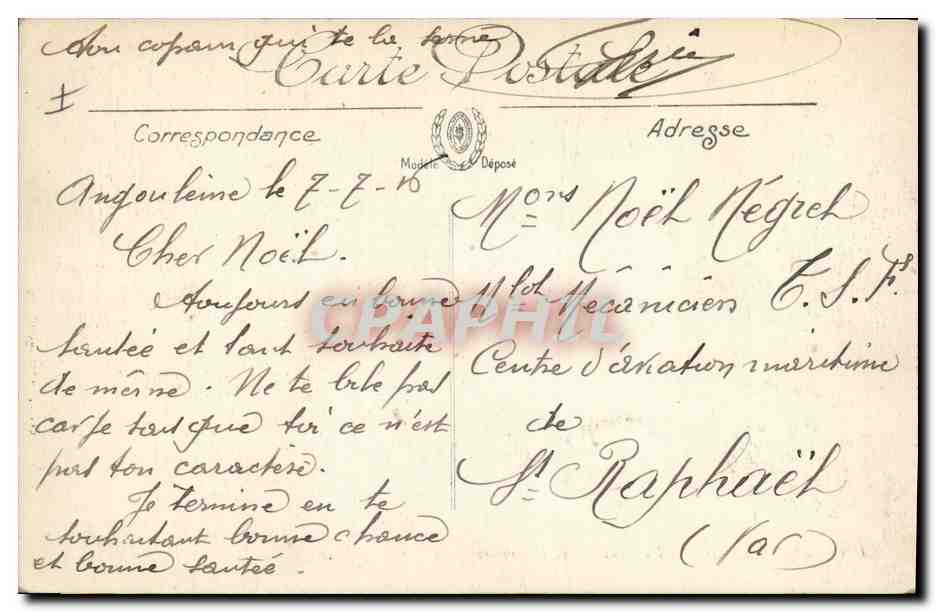 ton copain qui te la serre
Carte Postale
Correspondance
Adresse
Modèle Déposé
Angoulême le 7-7-16
Cher Noël.
Toujours en bonne
santée et tant souhaite
de même. Ne te bile pas
car je sais que toi ce n'est
pas ton caractère.
Je termine en te
souhaitant bonne chance
et bonne santée.
Mons Noël Négrel
Mlot Mécanicien T.S.F.
Centre d'aviation maritime
de
St. Raphaël
(Var)
CPAPHIL